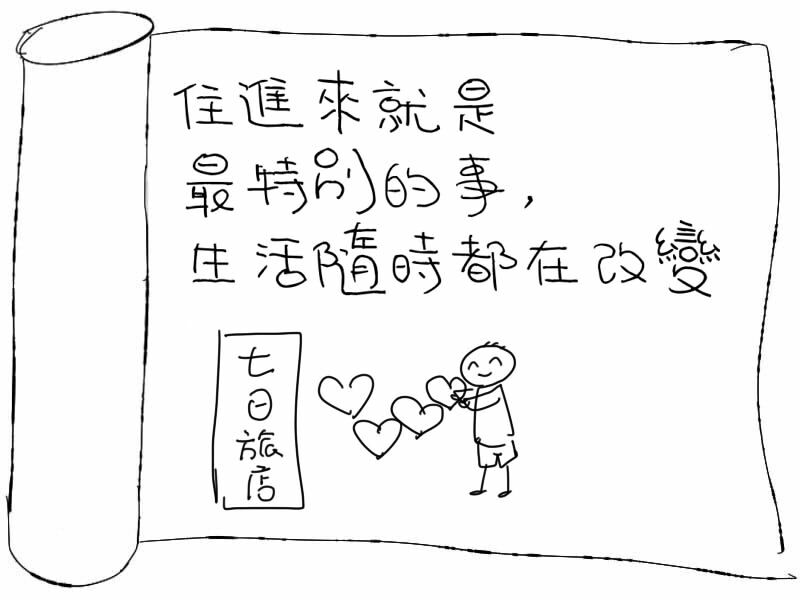 住進來就是
最特別的事，
生活隨時都在改變
七日旅店